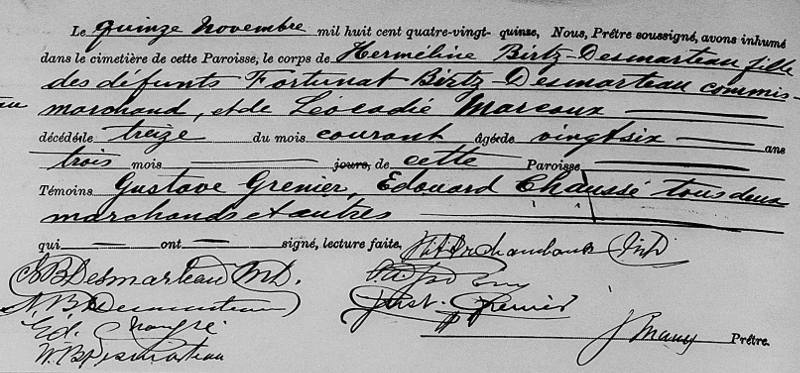 Le quinze Novembre mil huit cent quatre-vingt- quinze, Nous, Prêtre soussigné, avons inhumé
dans le cimetière de cette Paroisse, le corps de Herméline Birtz-Desmarteau fille
des défunts Fortunat Birtz-Desmarteau commis-
marchand, et de Léocadie Marcoux
décédé le treize du mois courant âgé de vingt six ans
trois mois jours, de cette Paroisse
Témoins Gustave Grenier, Edouard Chaussé tous deux
marchands et autres
qui ont signé, lecture faite.
Desmarteau M.D.
N. B. Desmarteau
Gust. Grenier
Ed. Chaussé
Prêtre.
N. B. Desmarteau